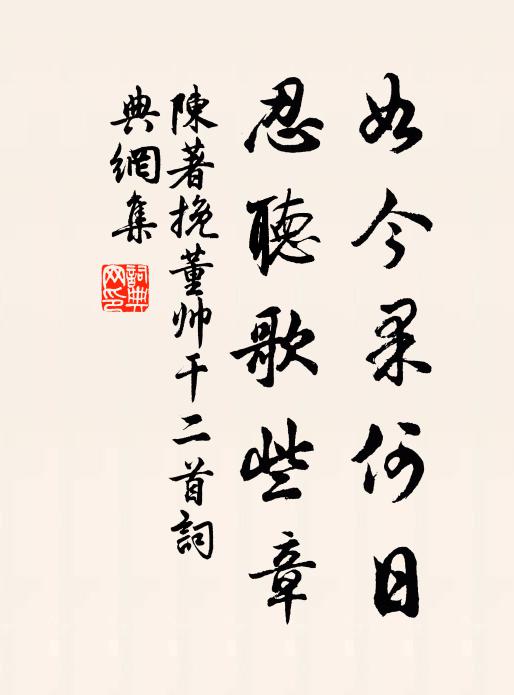 如今果何日
忍聽歌些章
陳著挽董帅干二首詞
典網集
詞典
网印